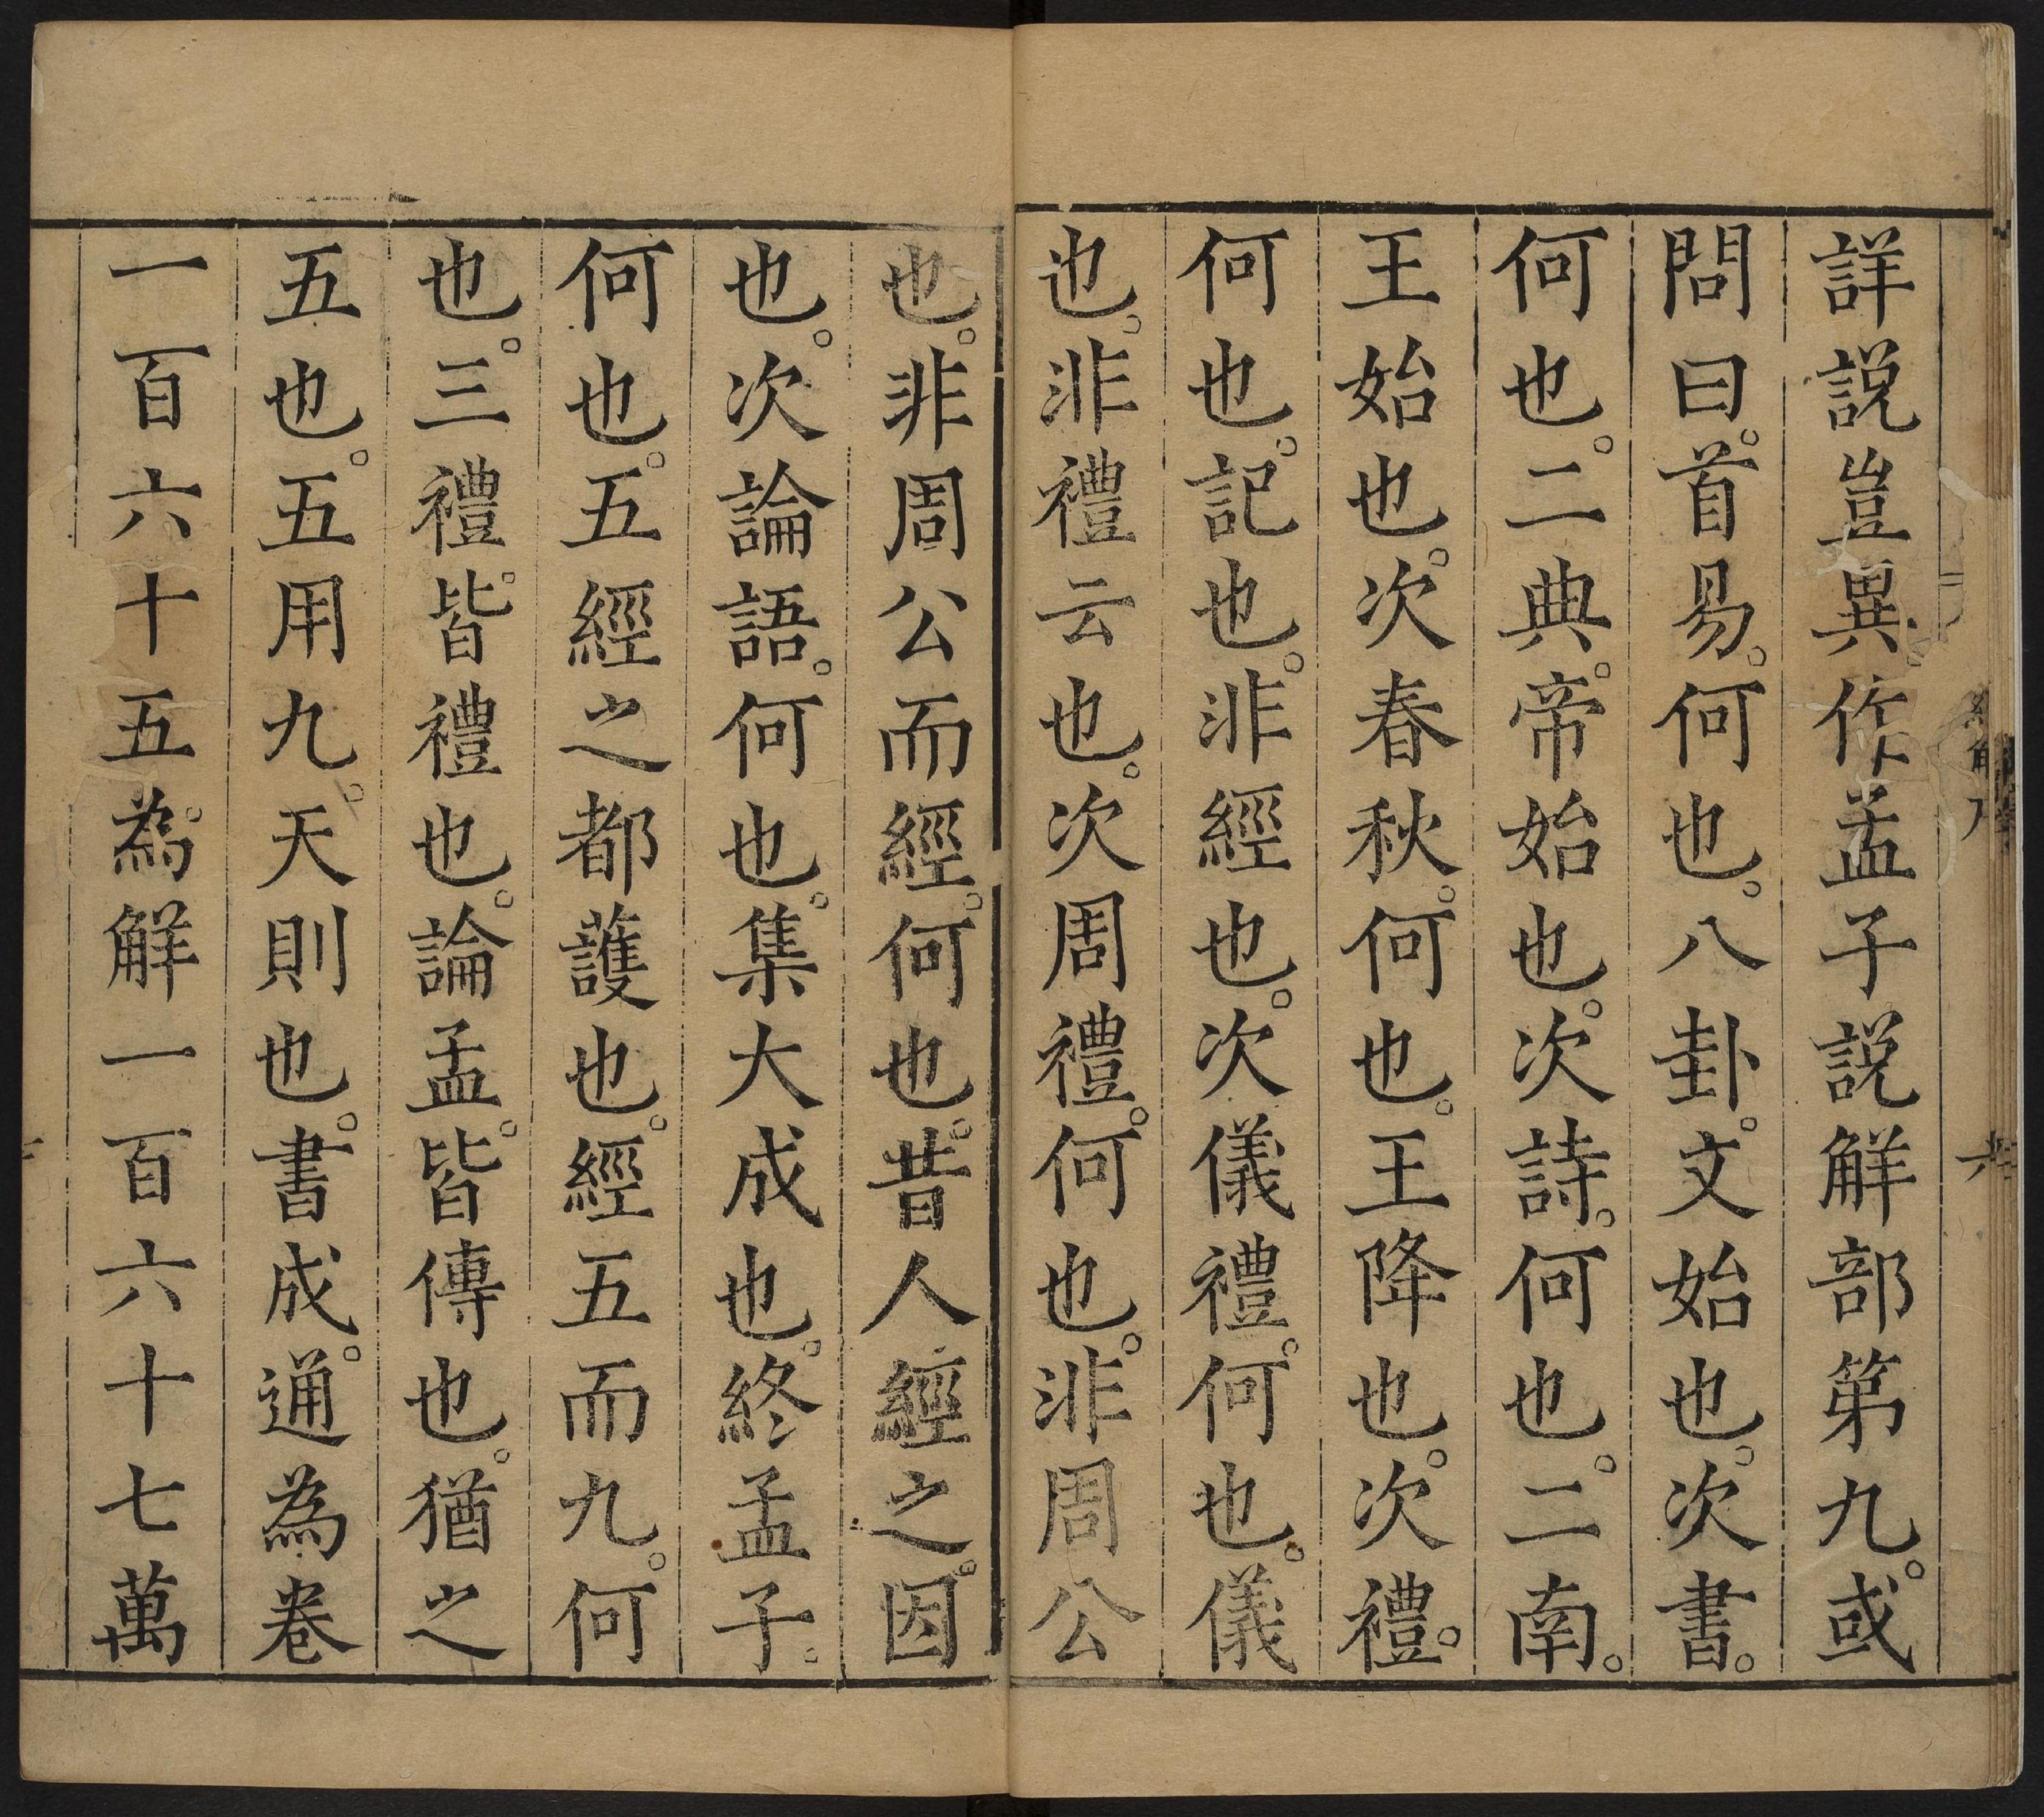 詳説豈異作孟子説解部第九。或
問曰。首易。何也。八卦。文始也。次書。
何也。二典。帝始也。次詩。何也。二南。
王始也。次春秋。何也。王降也。次禮。
何也。記也。非經也。次儀禮。何也。儀
也。非禮云也。次周禮。何也。非周公
也。非周公而經。何也。昔人經之。因
也。次論語。何也。集大成也。終孟子。
何也。五經之都護也。經五而九。何
也。三禮。皆禮也。論孟。皆傳也。猶之
五也。五用九。天則也。書成。通為卷
一百六十五。為解一百六十七萬